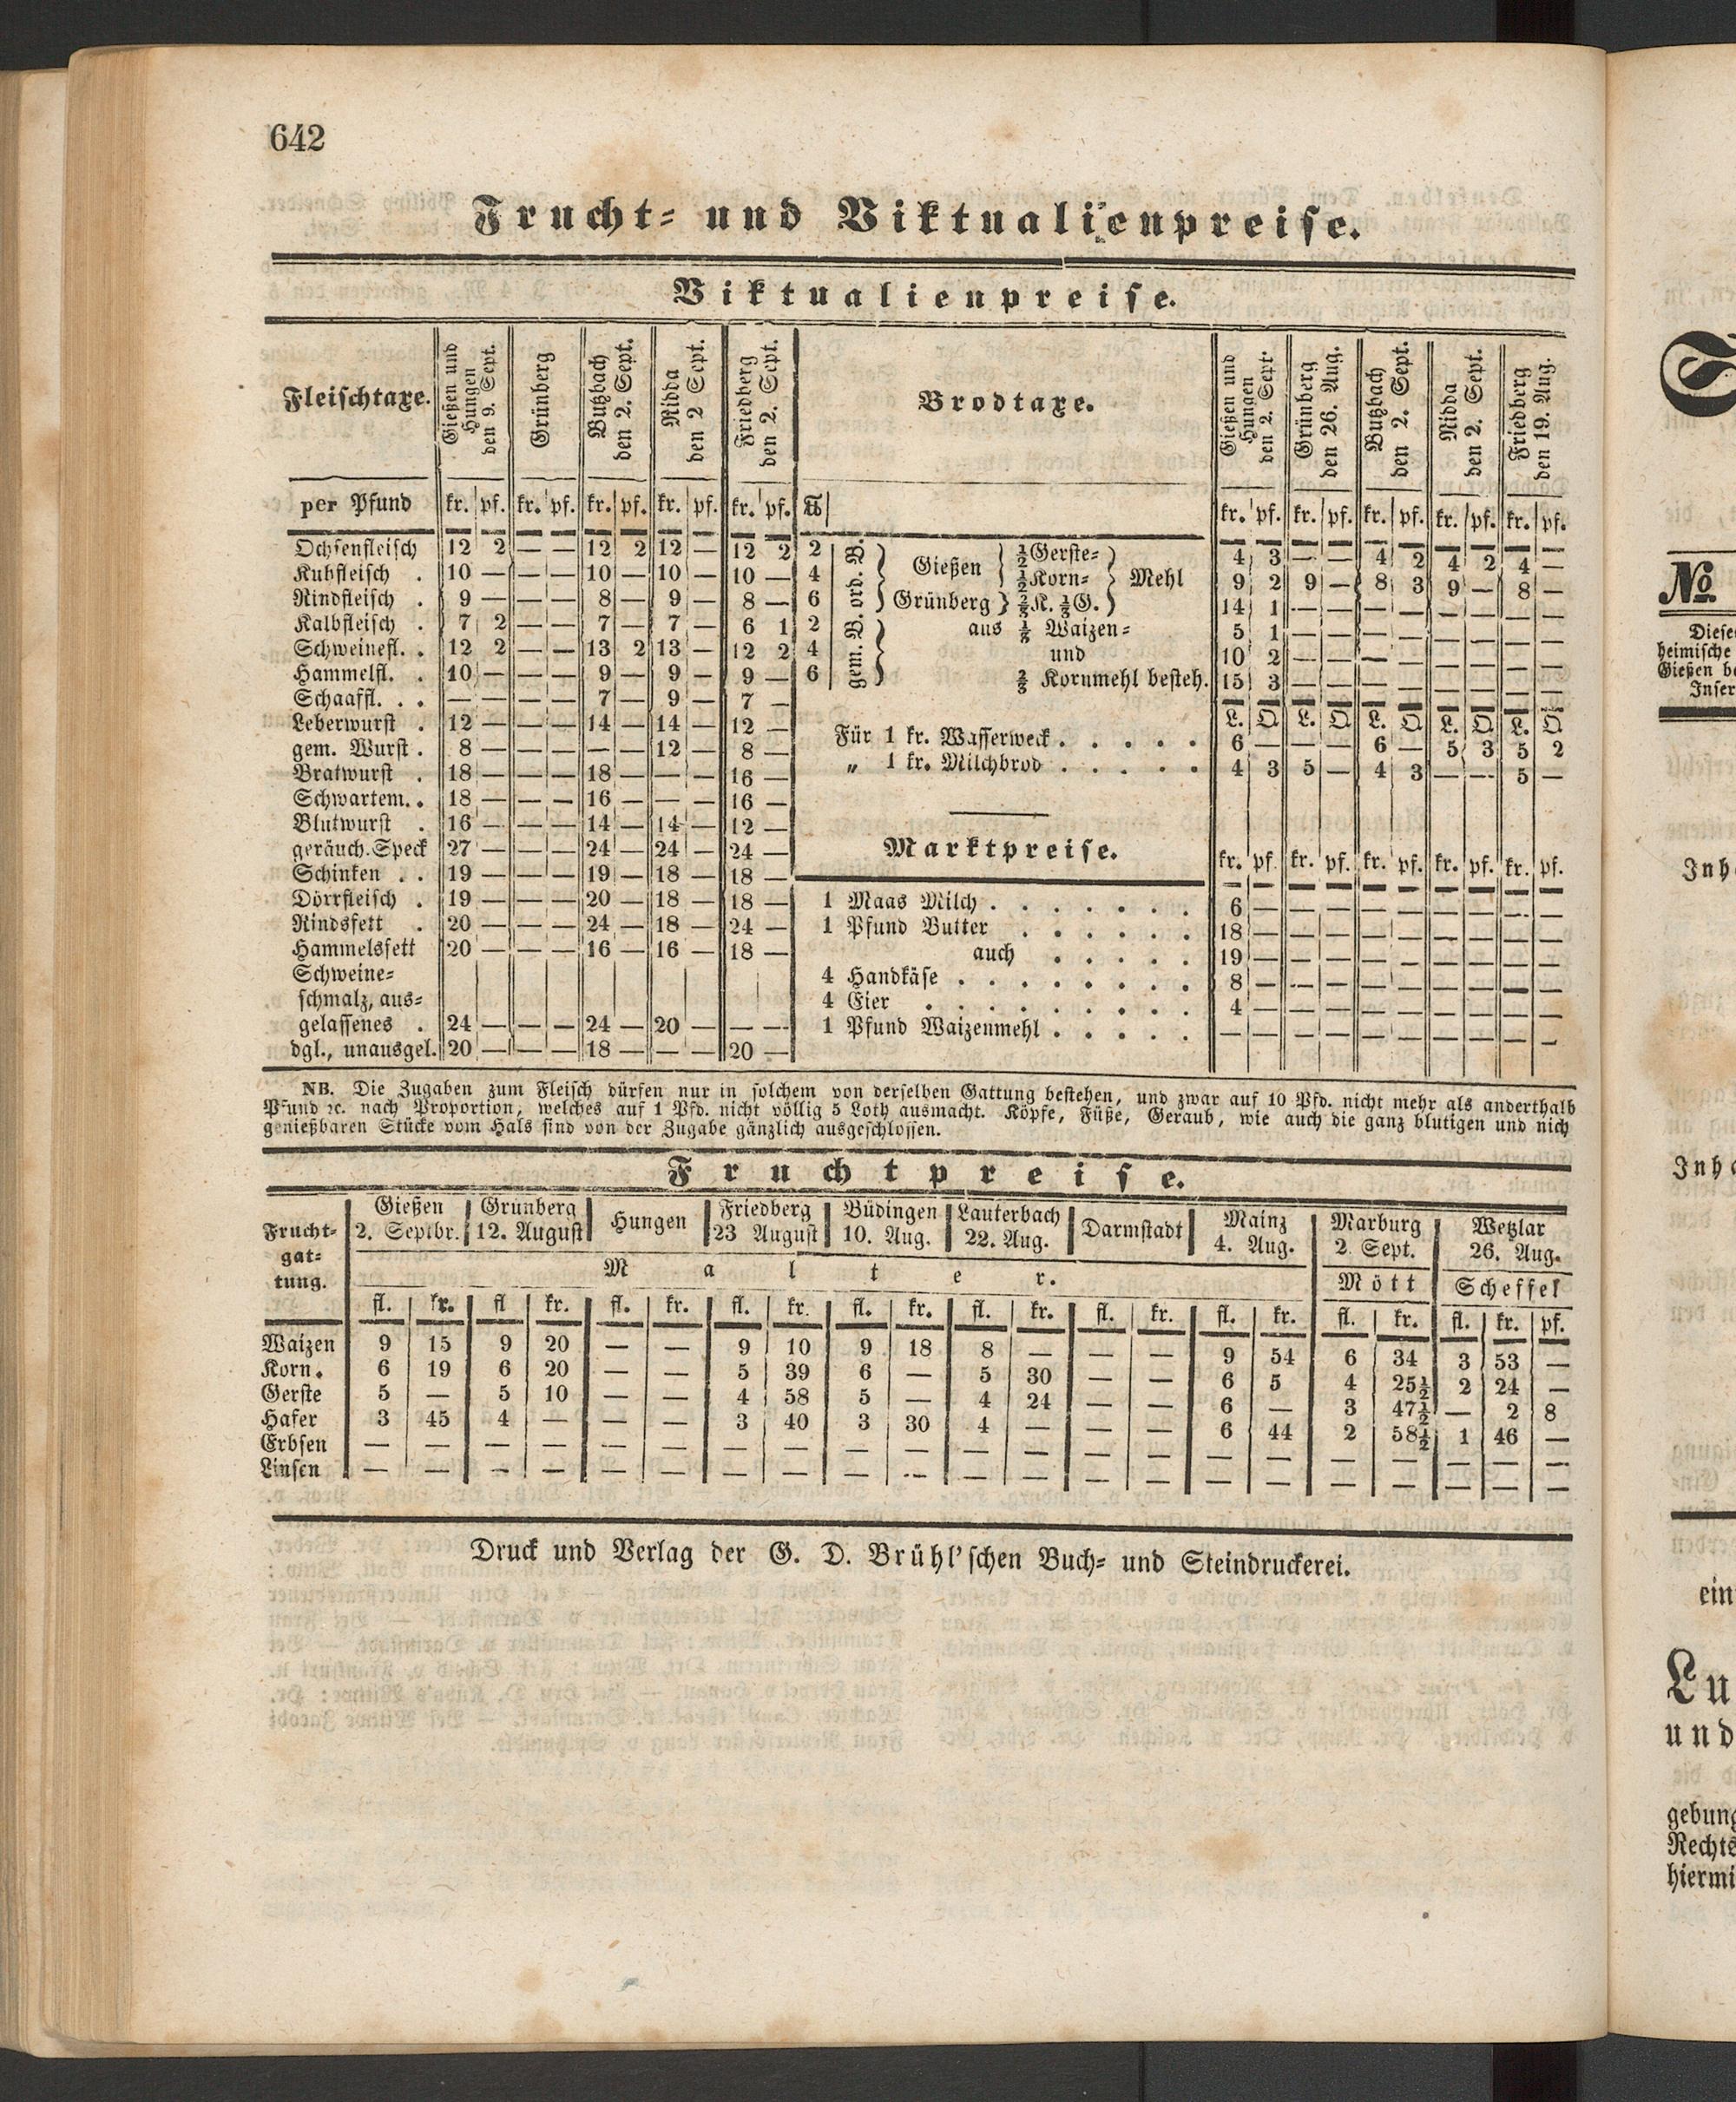 642
Frucht- und Viktualienpreise.
Viktualienpreise.
Fleischtaxe. Gießen und Hungen den 9. Sept. Grünberg Butzbach den 2. Sept. Nidda den 2 Sept. Friedberg den 2. Sept.
per Pfund kr. pf. kr. pf. kr. pf. kr. pf. kr. pf.
Ochsenfleisch 12 2 — — 12 2 12 — 12 2
Kuhfleisch . 10 — — — 10 — 10 — 10 —
Rindfleisch . 9 — — — 8 — 9 — 8 —
Kalbfleisch . 7 2 — — 7 — 7 — 6 1
Schweinefl. . 12 2 — — 13 2 13 — 12 2
Hammelfl. . 10 — — — 9 — 9 — 9 —
Schaaffl. . . — — — — 7 — 9 — 7 —
Leberwurst . 12 — — — 14 — 14 — 12 —
gem. Wurst . 8 — — — — — 12 — 8 —
Bratwurst . 18 — — — 18 — — — 16 —
Schwartem. . 18 — — — 16 — — — 16 —
Blutwurst . 16 — — — 14 — 14 — 12 —
geräuch. Speck 27 — — — 24 — 24 — 24 —
Schinken . . 19 — — — 19 — 18 — 18 —
Dörrfleisch . 19 — — — 20 — 18 — 18 —
Rindsfett . 20 — — — 24 — 18 — 24 —
Hammelsfett 20 — — — 16 — 16 — 18 —
Schweine-
schmalz, aus-
gelassenes . 24 — — — 24 — 20 — — —
dgl., unausgel. 20 — — — 18 — — — 20 —
Brodtaxe. Gießen und Hungen den 2. Sept. Grünberg den 26. Aug. Butzbach den 2. Sept. Nidda den 2. Sept. Friedberg den 19. Aug.
℔ kr. pf. kr. pf. kr. pf. kr. pf. kr. pf.
2 ord. B. Gießen ½ Gerste- 4 3 — — 4 2 4 2 4 —
4 ½ Korn- Mehl 9 2 9 — 8 3 9 — 8 —
6 Grünberg ⅔ K. ⅓ G. 14 1 — — — — — — — —
2 gem. B. aus ⅓ Waizen- 5 1 — — — — — — — —
4 und 10 2 — — — — — — — —
6 ⅔ Kornmehl besteh. 15 3 — — — — — — — —
L. Q L. Q L. Q L. Q L. Q
Für 1 kr. Wasserweck . . . . . 6 — — — 6 — 5 3 5 2
„ 1 kr. Milchbrod . . . . . 4 3 5 — 4 3 — — 5 —
Marktpreise. kr. pf kr. pf. kr. pf. kr. pf. kr. pf.
1 Maas Milch . . . . . . . 6 — — — — — — — — —
1 Pfund Butter . . . . . . 18 — — — — — — — — —
auch . . . . . 19 — — — — — — — — —
4 Handkäse . . . . . . . . 8 — — — — — — — — —
4 Eier . . . . . . . . . 4 — — — — — — — — —
1 Pfund Waizenmehl . . . . . — — — — — — — — — —
NB. Die Zugaben zum Fleisch dürfen nur in solchem von derselben Gattung bestehen, und zwar auf 10 Pfd. nicht mehr als anderthalb
Pfund ꝛc. nach Proportion, welches auf 1 Pfd. nicht völlig 5 Loth ausmacht. Köpfe, Füße, Geraub, wie auch die ganz blutigen und nich
genießbaren Stücke vom Hals sind von der Zugabe gänzlich ausgeschlossen.
Fruchtpreise.
Frucht-gat-tung. Gießen 2. Septbr. Grünberg 12. August Hungen Friedberg 23 August Büdingen 10. Aug. Lauterbach 22. Aug. Darmstadt Mainz 4. Aug. Marburg 2. Sept. Wetzlar 26. Aug.
Malter. Mött Scheffel
fl. kr. fl kr. fl. kr. fl. kr. fl. kr. fl. kr. fl. kr. fl. kr. fl. kr. fl. kr. pf.
Waizen 9 15 9 20 — — 9 10 9 18 8 — — — 9 54 6 34 3 53 —
Korn. 6 19 6 20 — — 5 39 6 — 5 30 — — 6 5 4 25½ 2 24 —
Gerste 5 — 5 10 — — 4 58 5 — 4 24 — — 6 — 3 47½ — 2 8
Hafer 3 45 4 — — — 3 40 3 30 4 — — — 6 44 2 58½ 1 46 —
Erbsen — — — — — — — — — — — — — — — — — — — — —
Linsen — — — — — — — — — — — — — — — — — — — — —
Druck und Verlag der G. D. Brühl'schen Buch- und Steindruckerei.
No
Diese
heimische
Gießen be
Inser
ein
Lu
und
gebung
Rechts
hiermi